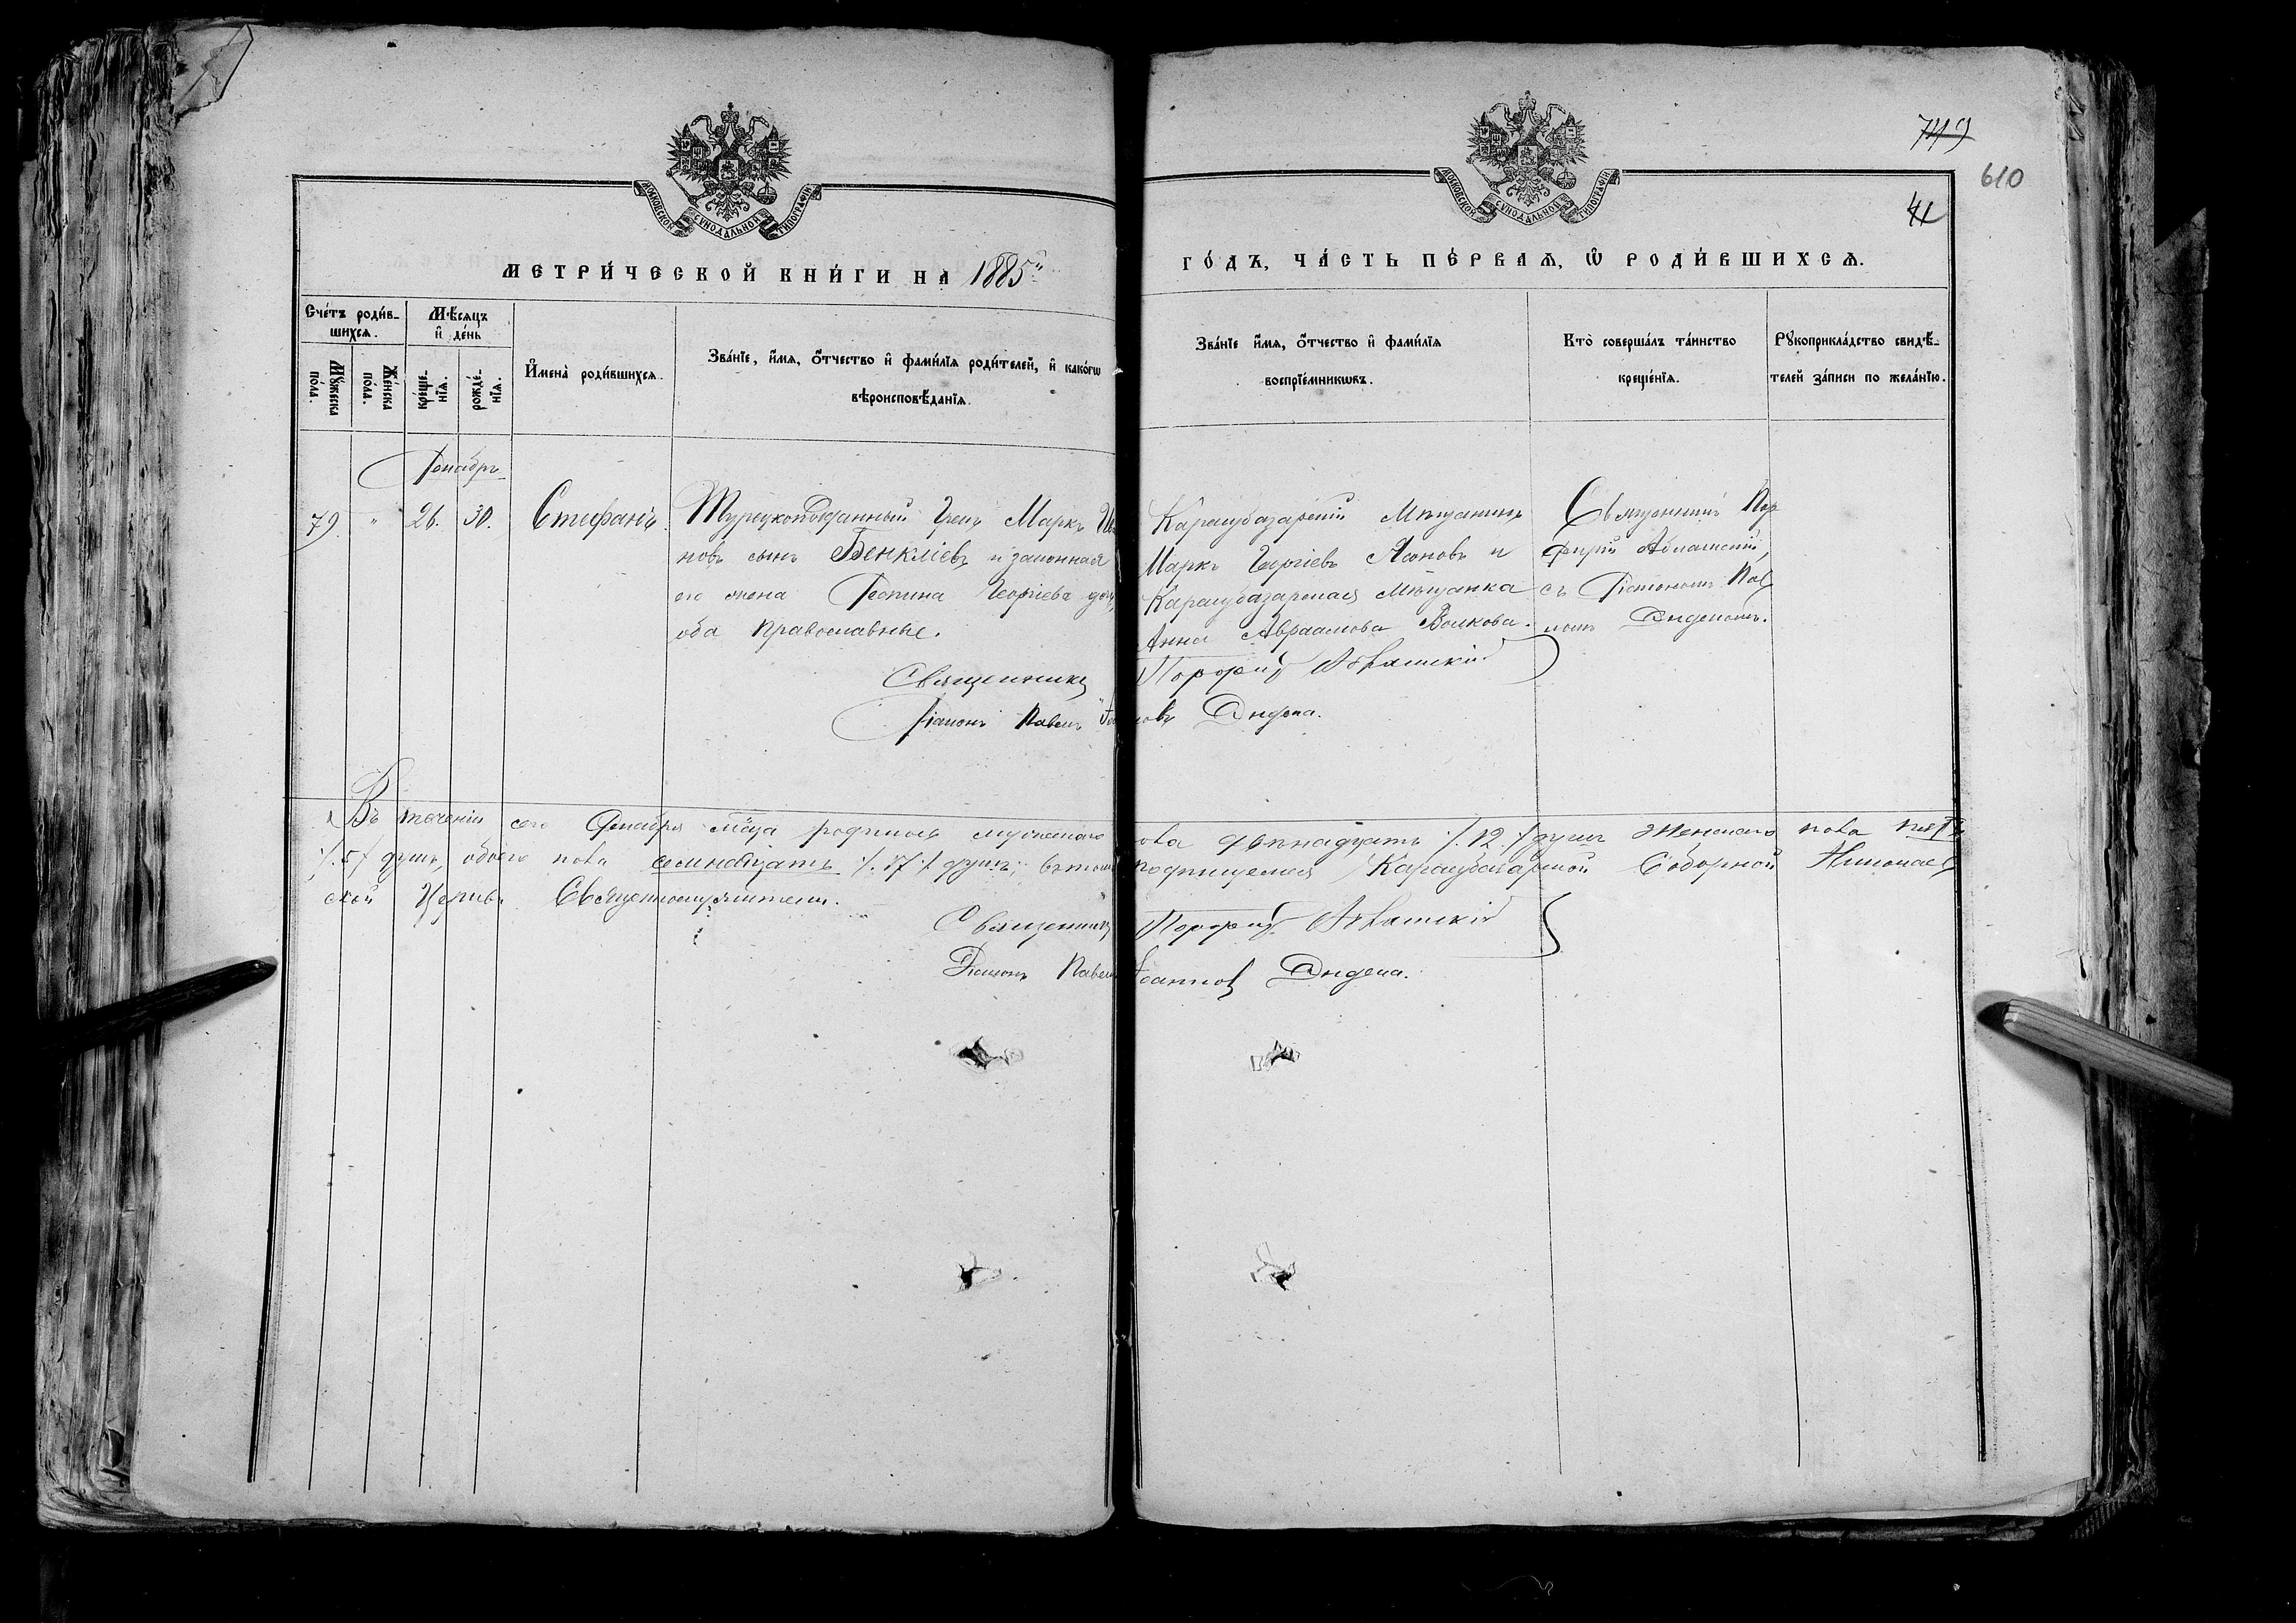 749
610
41
МОСКОВСКОЙ СѴНОДАЛЬНОЙ ТИПОГРАФІИ
МОСКОВСКОЙ СѴНОДАЛЬНОЙ ТИПОГРАФІИ
МЕТРИ́ЧЕСКОЙ КНИ́ГИ НА 1885й
ГО́ДЪ, ЧА́СТЬ ПЕ́РВАѦ, Ѡ҆ РОДИ́ВШИХСѦ.
Сче́тъ роди́в-
шихсѧ.
Мꙋ́жеска по́ла.
Же́нска по́ла.
Мѣ́сѧцъ
и҆ де́нь
креще́-
нїѧ.
рожде́-
нїѧ.
И҆мена̀ роди́вшихсѧ.
Зва́нїе, и҆́мѧ, ѻ҆́тчество и҆ фами́лїѧ роди́телей, и҆ како́гѡ
вѣроисповѣ́данїѧ.
Зва́нїе и҆́мѧ, ѻ҆́тчество и҆ фами́лїѧ
воспрїе́мникѡвъ.
Кто̀ соверша́лъ та́инство
креще́нїѧ.
Рꙋкоприкла́дство свидѣ́-
телей за́писи по жела́нїю.
Декабрь
79. " 26. 30. Стефанъ
Турецкоподданный Грекъ Маркъ
новъ сынъ Бенкліевъ и законная
его жена Георгіева
оба Православные.
Карасубазарскій Мѣщанинъ
Маркъ Георгіевъ и
Карасубазарская Мѣщанка
Анна Авраамова Волкова.
Священникъ Пор
фирій
съ Діакономъ Пав
ломъ
Священникъ Порфирій
Діаконъ Павелъ
Въ теченіи сего Декабря мѣсяца родилось мужескаго пола двѣнадцать /.12./ душъ женскаго пола пять
/.5/ душъ, обоего пола семнадцать /.17./ душъ; въ томъ подписуемся Карасубазарской Соборной Николаев
ской Церкви Священнослужители.
Священникъ Порфирій
Діаконъ Павелъ Іоанновъ